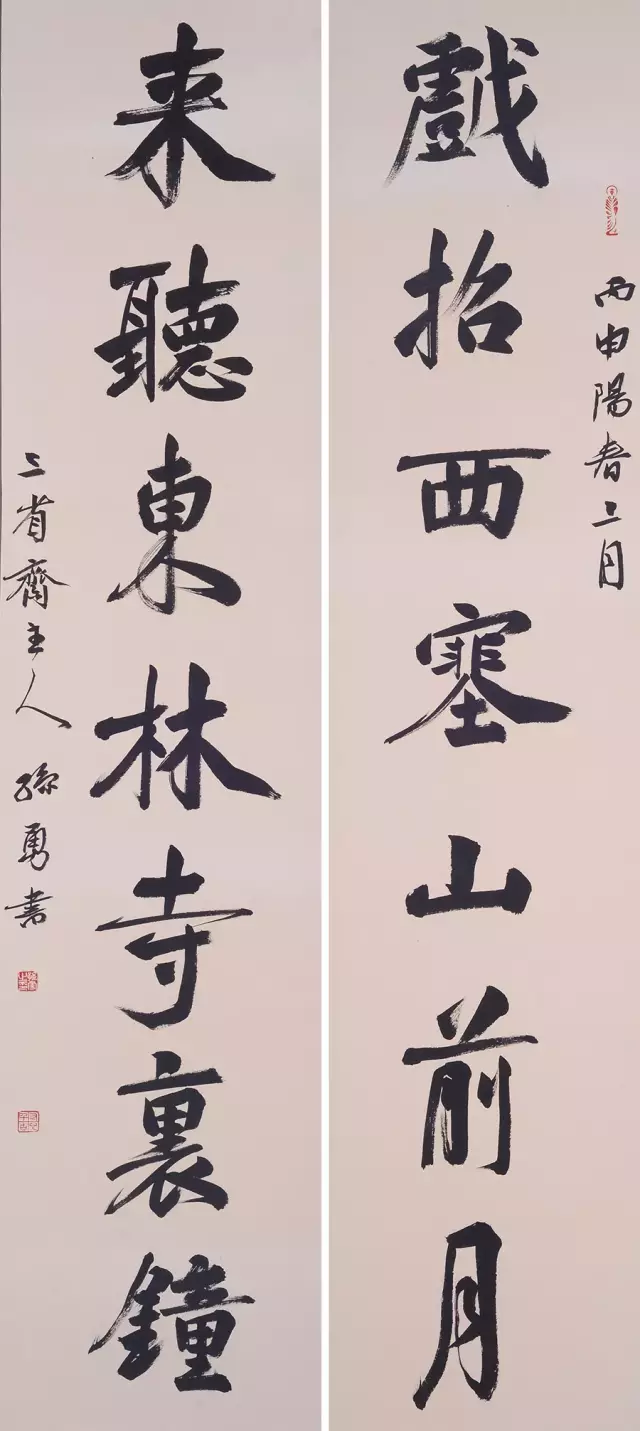 丙申陽春二月
戲招西塞山前月
来聽東林寺裏鐘
三省齋主人 孫勇書